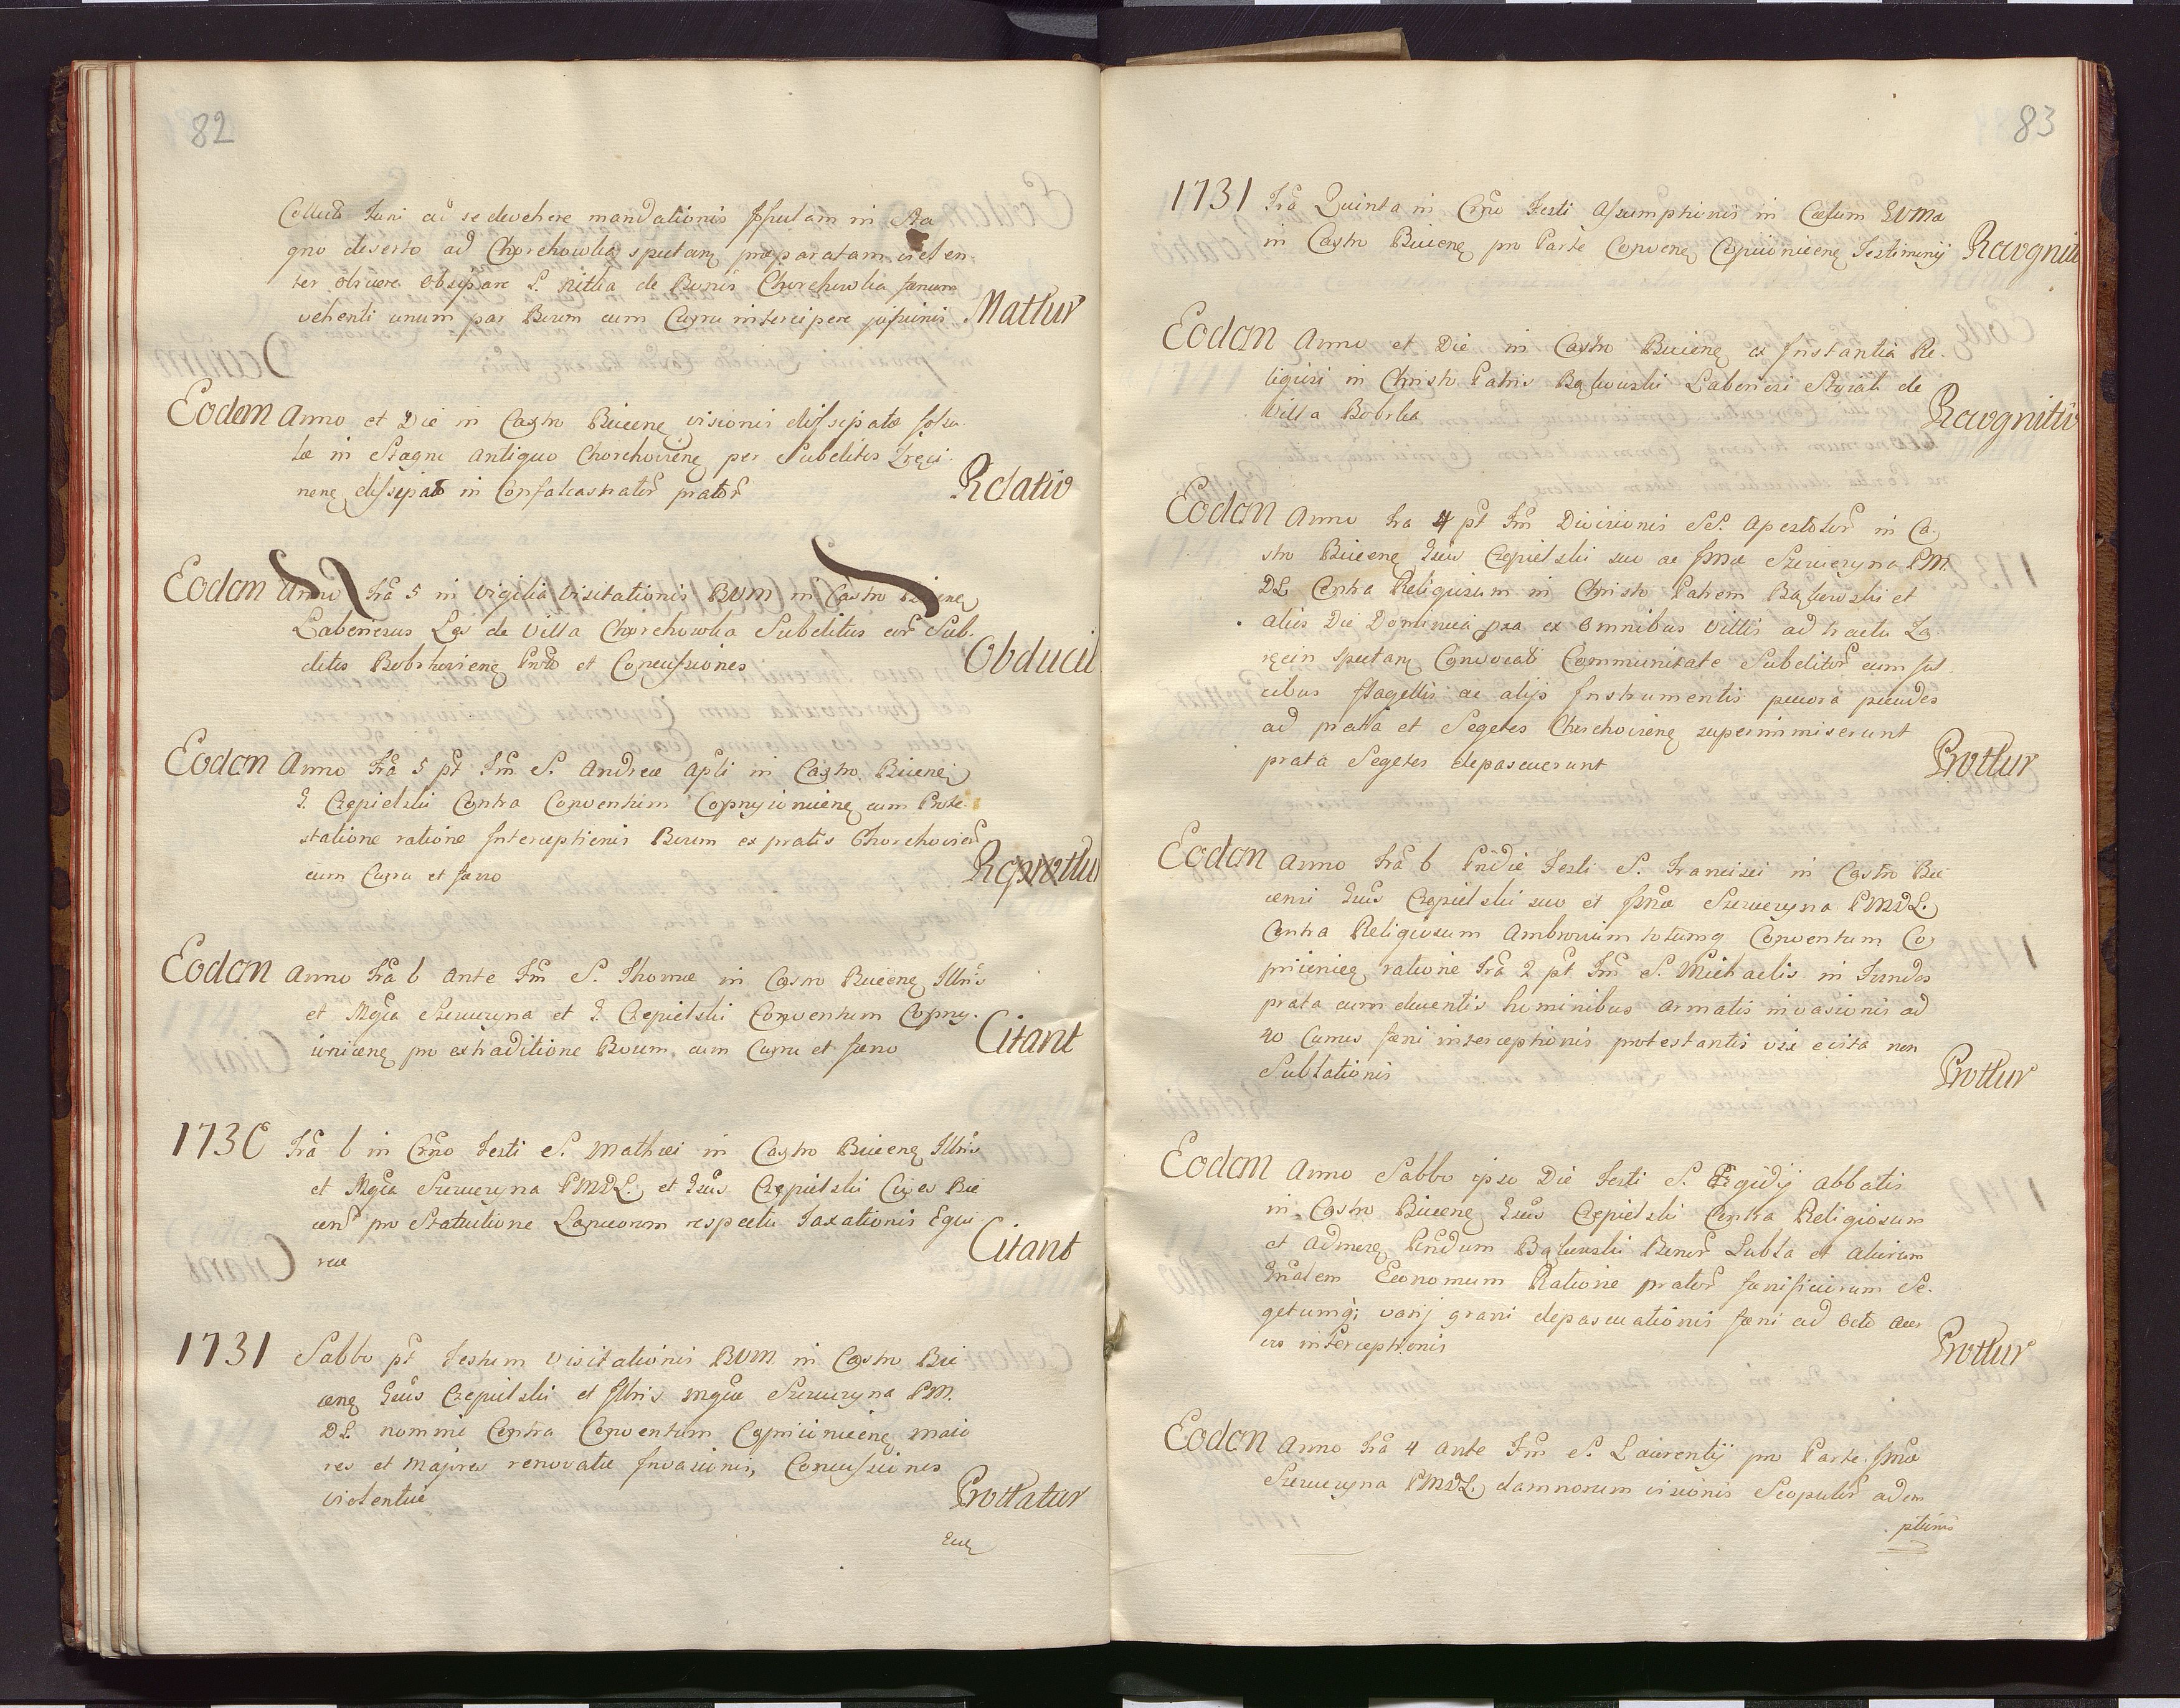 82
Collecto Juri ad se devehere mandationis fossulam in Sta
gno deserto ad Chorchowka spectan praeparatam violen
ter obruere obsipare S. Nitka de Bonis Chorchowka faenum
vehenti unum par Boum cum Curru intercipere jussionis Mattur
Eodem Anno et Die in Castro Biecen visionis dissipatae fossu
lae in Stagno antiquo Chorchovien per Subditos Zręci
nen dissipato in Confalcastrator prator Relatio
Eodem Anno Fra 5 in vigilia Visitationis BVM in Castro Biecen
Laboriosus Les de Villa Chorchowka Subditus cor Sub
ditis Bobrkovien et Concussiones Obducit
Eodem Anno Fra 5 pt Fm S. Andreae Apli in Castro Biecen
G. Czepielski Contra Conventum Coprzyionicen cum Prote
statione ratione Interceptionis Boum ex pratis Chorchovien
cum Curru et faeno Reprottur
Eodem Anno Fra 6 ante Fm S. Thomae in Castro Biecen Illris
et Mgca Szeweryna et G. Czepielski Conventum Coprzy
ionicen pro extraditione Boum cum Curru et faeno Citant
1730 Fra 6 in Crno Festi S. Mathaei in Castro Biecen Illris
et Mgca Szeweryna PMDL. et Gsus Czepielski Cives Bie
cen pro Statutione respectu Taxationis Equi
Citant
1731 Sabbo pt Festum Visitationis BVM in Castro Bie
cen Gsus Czepielski et Illris Mgcae Szeweryna PM.
DL nomine Contra Conventum Coprzionicen maio
res et majores renovatae Invasionis, Concussiones
violentiae Prottatur
83
1731 Fra Quinta in Crno Festi Assumptionis in Caelum BVMa
in Castro Biecen pro Parte Conven Copriionicen Testimonij Recognitio
Eodem Anno et Die in Castro Biecen ex Instantia Re
ligiosi in Christo Patris Bąkowski Laboriosi de
Villa Bobrka Recognitio
Eodem Anno Fra 4 pt Fm Divisionis SS. Apostolor in Ca
stro Biecen Gsus Czepielski suo ac Illmae Szeweryna PM.
DL Contra Religiosum in Christo Patrem Bąkowski et
alios Die Dominica pxa ex omnibus Villis ad tractu Zą
ręcin spectan Convocati Communitate Subditor cum fus
tibus flagellis ac alijs Instrumentis pecora pecudes
ad prata et Segetes Chorchovien superimmiserunt
prata Segetes depascuerunt Prottur
Eodem Anno Fra 6 Pridie Festi S. Francisci in Castro Bie
censi Gsus Czepielski suo et Illmae Szeweryna PMDL.
Contra Religiosum Ambrosium totumq Conventum Co
priionicen ratione Fra 2 pt Fm S. Michaelis in Fundos
prata cum ducentis hominibus armatis invasionis ad
40 Currus faeni interceptionis protestantis vix e vita non
Sublationis Prottur
Eodem Anno Sabbo ipso Die Festi S. Egidij Abbatis
in Castro Biecen Gsus Czepielski Contra Religiosum
et Admren Pndum Bąkowski et alterum
Gnalem Economum Ratione prator faenisiciorum Se
getumq; varij grani depascuationis faeni ad octo acer
vos interceptionis Prottur
Eodem Anno Fra 4 ante Fm S. Laurentij pro Parte Illmae
Szeweryna PMDL. damnorum visionis Scopulor adem
ptionis